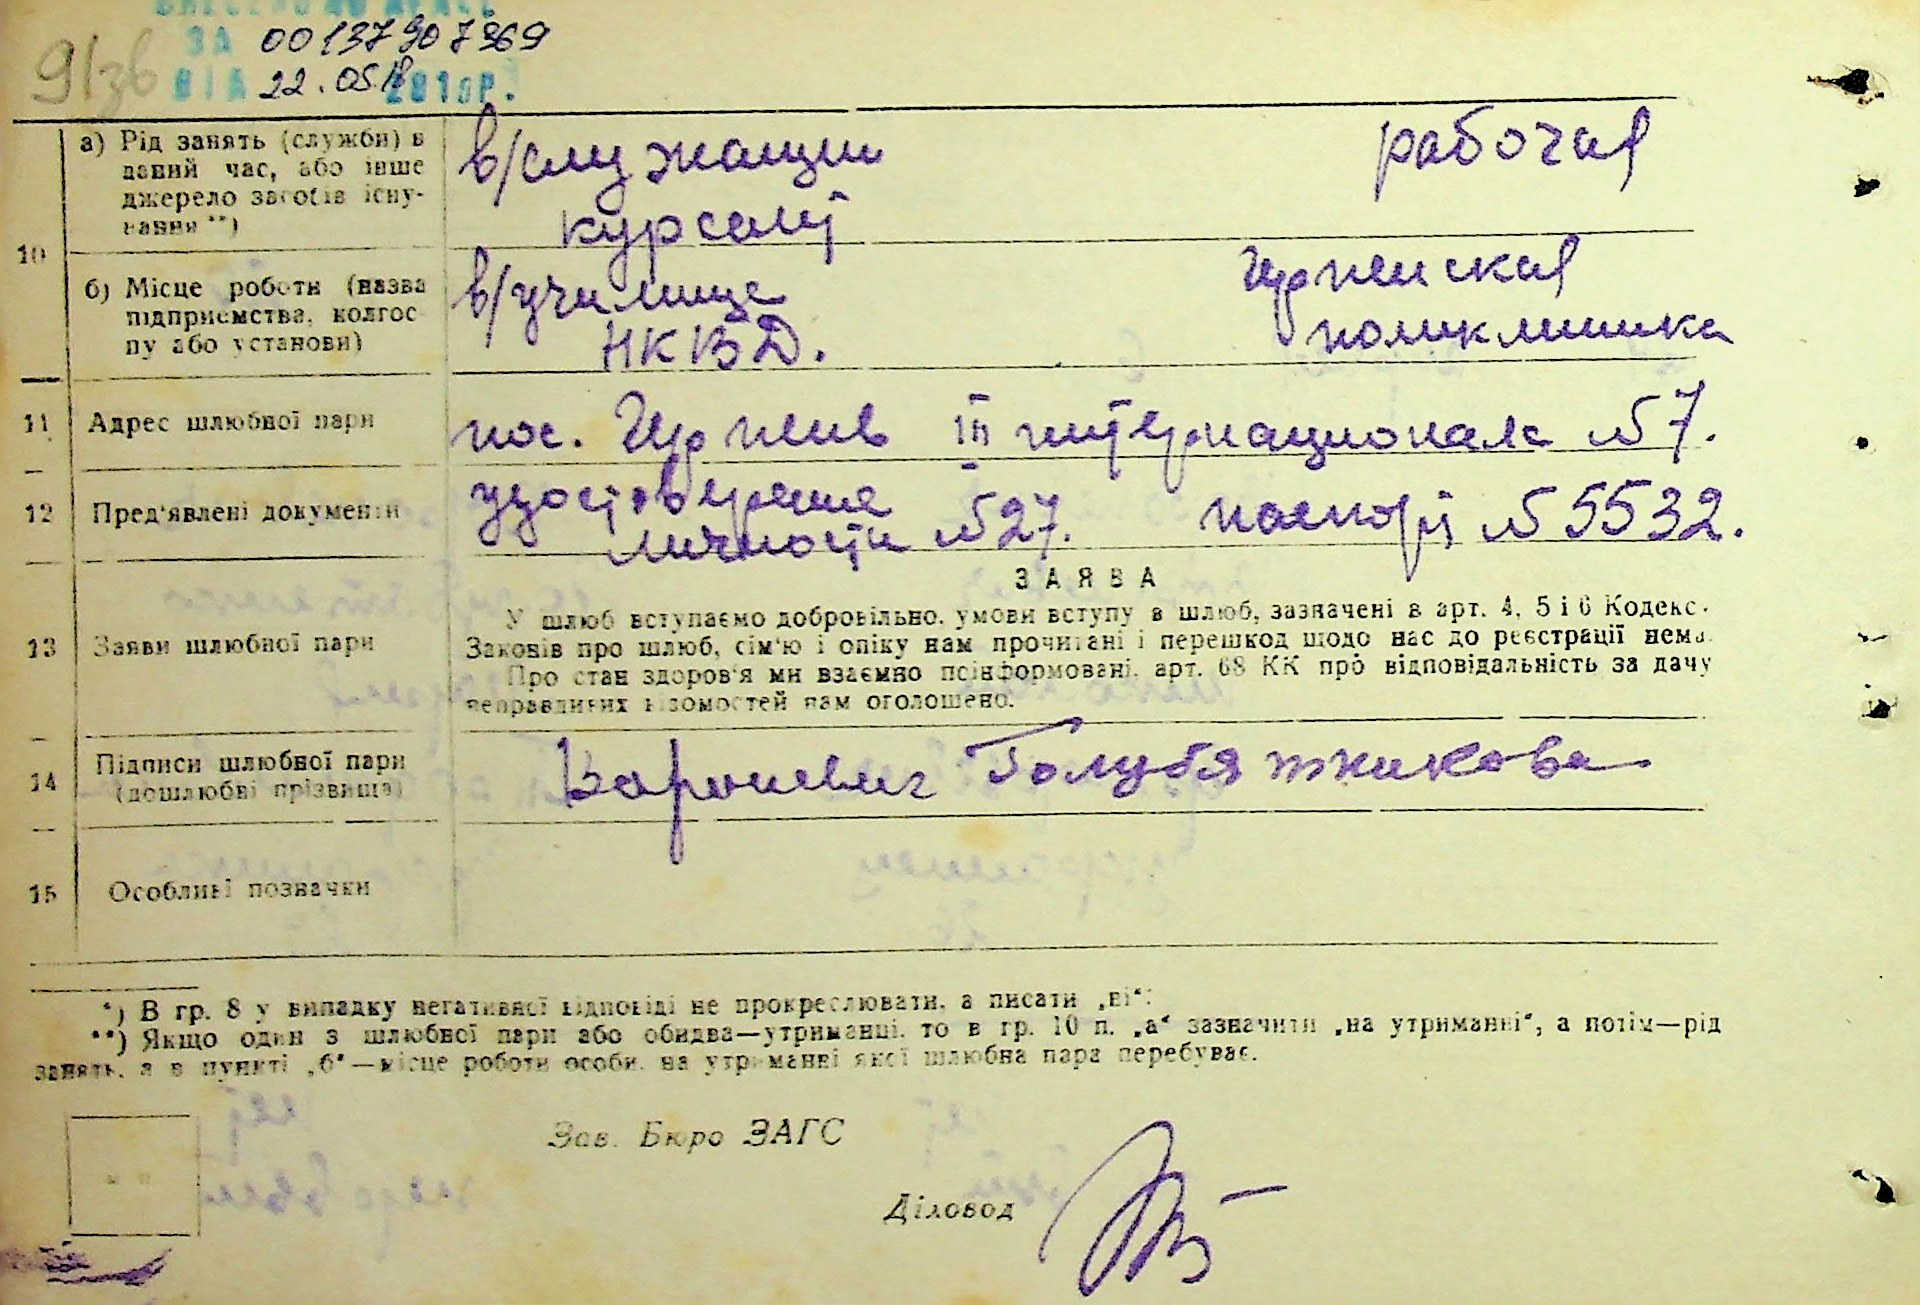 91зв
ЗА 00137907969
ВІД 22.05.18
10
а) Рід занять (служби) в
даний час, або інше
джерело засобів існу-
вання **)
в/служащий
курсант
рабочая
б) Місце роботи (назва
підприємства, колгос
пу або установи)
в/училище
НКВД.
Ирпенская
поликлиника
11
Адрес шлюбної пари
пос. Ирпень III интернационала №7.
12
Пред'явлені документи
удостоверение
личности №27.
паспорт №5532.
13
Заяви шлюбної пари
ЗАЯВА
У шлюб вступаємо добровільно, умови вступу в шлюб, зазначені в арт. 4, 5 і 6 Кодекс.
Законів про шлюб, сім'ю і опіку нам прочитані і перешкод щодо нас до реєстрації нема.
Про стан здоров'я ми взаємно поінформовані. арт. 68 КК про відповідальність за дачу
неправдивих відомостей нам оголошено.
14
Підписи шлюбної пари
(дошлюбні прізвища)
Вороневич Голубятникова
15
Особливі позначки
*) В гр. 8 у випадку негативної відповіді не прокреслювати, а писати „ні“.
**) Якщо один з шлюбної пари або обидва—утриманці, то в гр. 10 п. „а“ зазначити „на утриманні“, а потім—рід
занять, а в пункті „б“—місце роботи особи, на утриманні якої шлюбна пара перебуває.
Зав. Бюро ЗАГС
Діловод